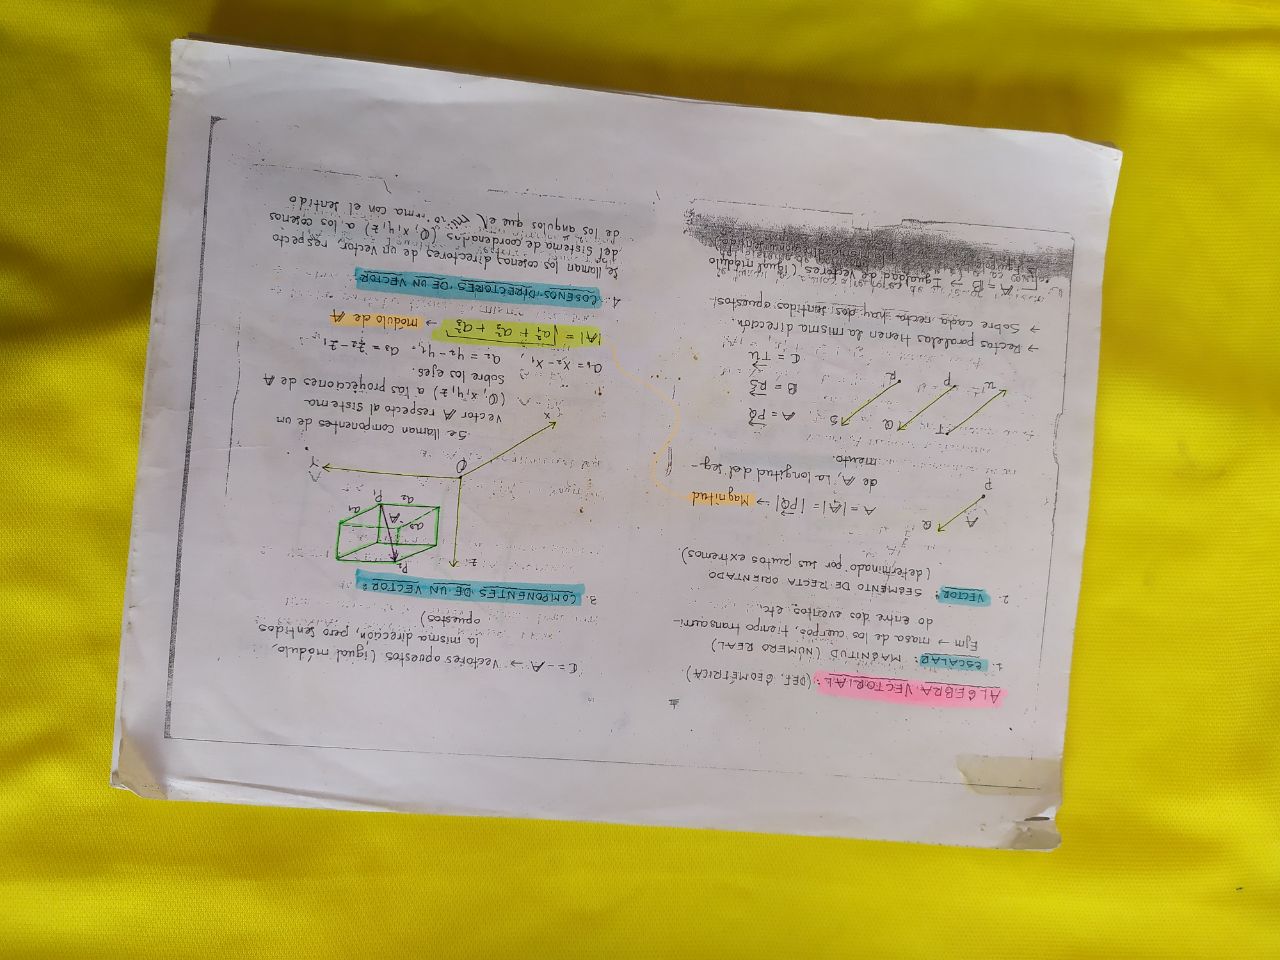 ALGEBRA VECTORIAL: (DEF. GEOMÉTRICA)
1. ESCALAR: MAGNITUD (NÚMERO REAL)
Ejm → masa de los cuerpos, tiempo transcurri-
do entre dos eventos, etc.
2. VECTOR: SEGMENTO DE RECTA ORIENTADO
(determinado por sus puntos extremos)
A = |A| = |PQ| → Magnitud
de A, la longitud del seg-
mento.
A
P
Q
A = PQ
B = RS
C = TU
U
T
P
Q
R
S
→ Rectas paralelas tienen la misma dirección.
→ Sobre cada recta hay dos sentidos opuestos.
A = B → Igualdad de vectores (igual módulo
C = -A → Vectores opuestos (igual módulo,
la misma dirección, pero sentidos
opuestos)
3. COMPONENTES DE UN VECTOR:
Z
P2
A
a3
a1
P1
a2
O
Y
X
Se llaman componentes de un
vector A respecto al sistema
(O, x, y, z) a las proyecciones de A
sobre los ejes.
a1 = x2 - x1, a2 = y2 - y1, a3 = z2 - z1
|A| = √a1² + a2² + a3² → módulo de A
4. COSENOS DIRECTORES DE UN VECTOR
Se llaman los cosenos directores de un vector, respecto
del sistema de coordenadas (O, x, y, z) a los cosenos
de los angulos que el forma con el sentido